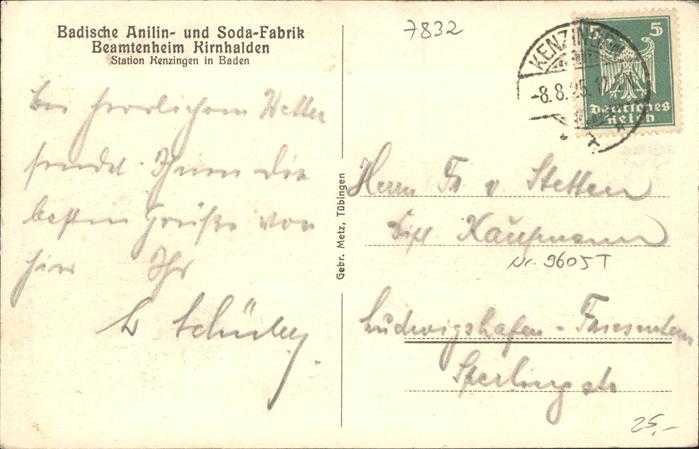 Badische Anilin- und Soda-Fabrik
Beamtenheim Kirnhalden
Station Kenzingen in Baden
7832
5 5
Deutsches
Reich
KENZINGEN
-8.8.25.
Bei herrlichem Wetter
sendet Ihnen die
besten Grüße von
hier Ihr
Gebr. Metz, Tübingen
Herrn Fr. v Stetten
Dipl Kaufmann
Nr. 9605T
Ludwigshafen - Friesenheim
Sperlingstr
25,-